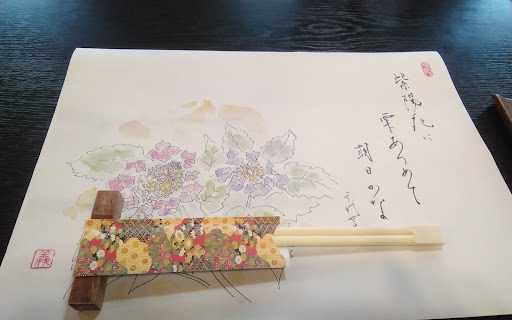 紫陽花に
雫あつめて
朝日かな
千代女